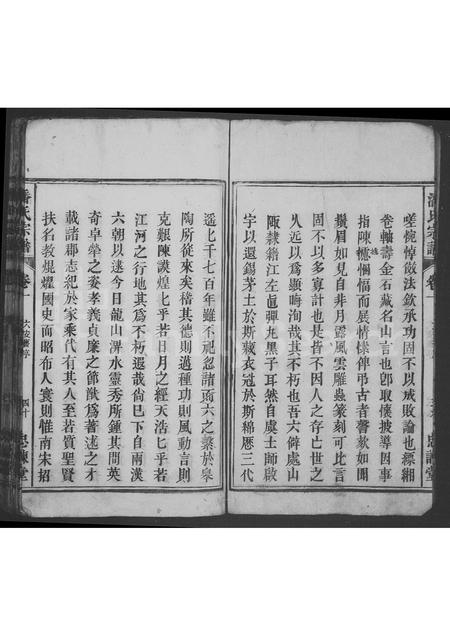 嗟惋悼斂法欽承功固不以成敗論也縹緗
卷軸壽金石藏名山言也卽取懷披導因事
指陳悃愊而展情愫俾弔古者謦欬如聞
鬚眉如見自非月露風雲雕蟲篆刻可比言
固不以多寡計也是皆不因人之存亡世之
久遠以為顯晦洵哉其不朽也吾六僻處山
陬隸籍江左直彈丸黑子耳然自虞士師啟
宇以還錫茅土於斯藏衣冠於斯綿歷三代
遥上千七百年雖不祀忽諸而六之蘂於皋
陶所從來矣稽其德則邁種功則風動言則
克艱陳謨煌七乎若日月之經天浩七乎若
江河之行地其為不朽遐哉尙已下自兩漢
六朝以逮今日龍山淠水靈秀所鍾其間英
奇卓犖之姿孝義貞廉之節猷為著述之才
載諸郡志紀於家乘代有其人至若質聖賢
扶名教焜燿國史而昭布人寰則惟南宋招
潘氏宗譜
卷一
四十